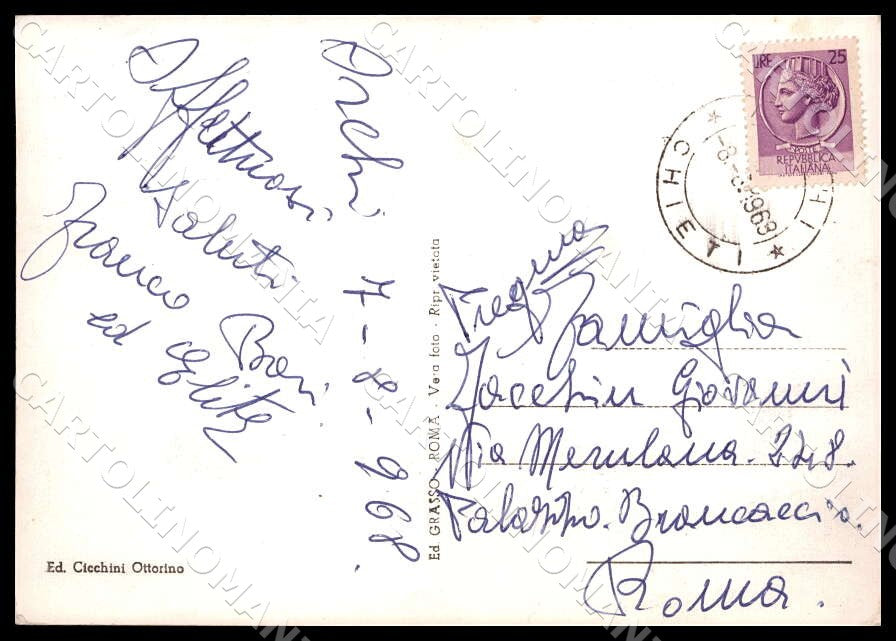 Orchi 7-8-968.
Affettuosi
Saluti Baci
Franco
ed
Ed. Cicchini Ottorino
Ed GRASSO - ROMA - Vera foto - Ripr. vietata
LIRE 25
POSTE
REPVBBLICA
ITALIANA
CHIETI
-8-8-1968
Famiglia
Giovanni
Via Merulana. 228.
Palazzo. Brancaccio.
Roma.
CARTOLINOMANIA